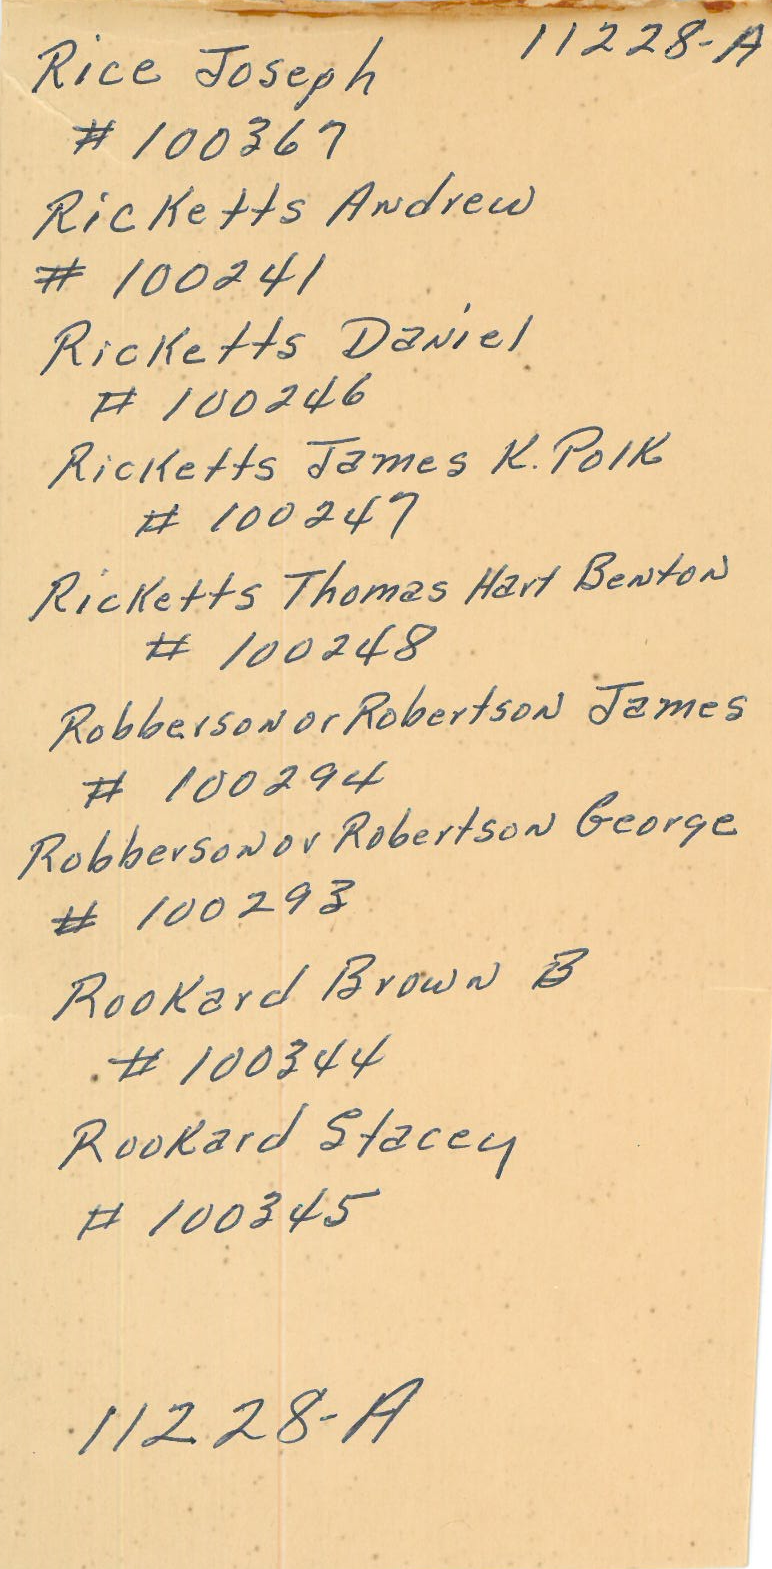 11228-A
Rice Joseph
# 100367
Ricketts Andrew
# 100241
Ricketts Daniel
# 100246
Ricketts James K. Polk
# 100247
Ricketts Thomas Hart Benton
# 100248
Robberson or Robertson James
# 100294
Robberson or Robertson George
# 100293
Rookard Brown B
# 100344
Rookard Stacey
# 100345
11228-A